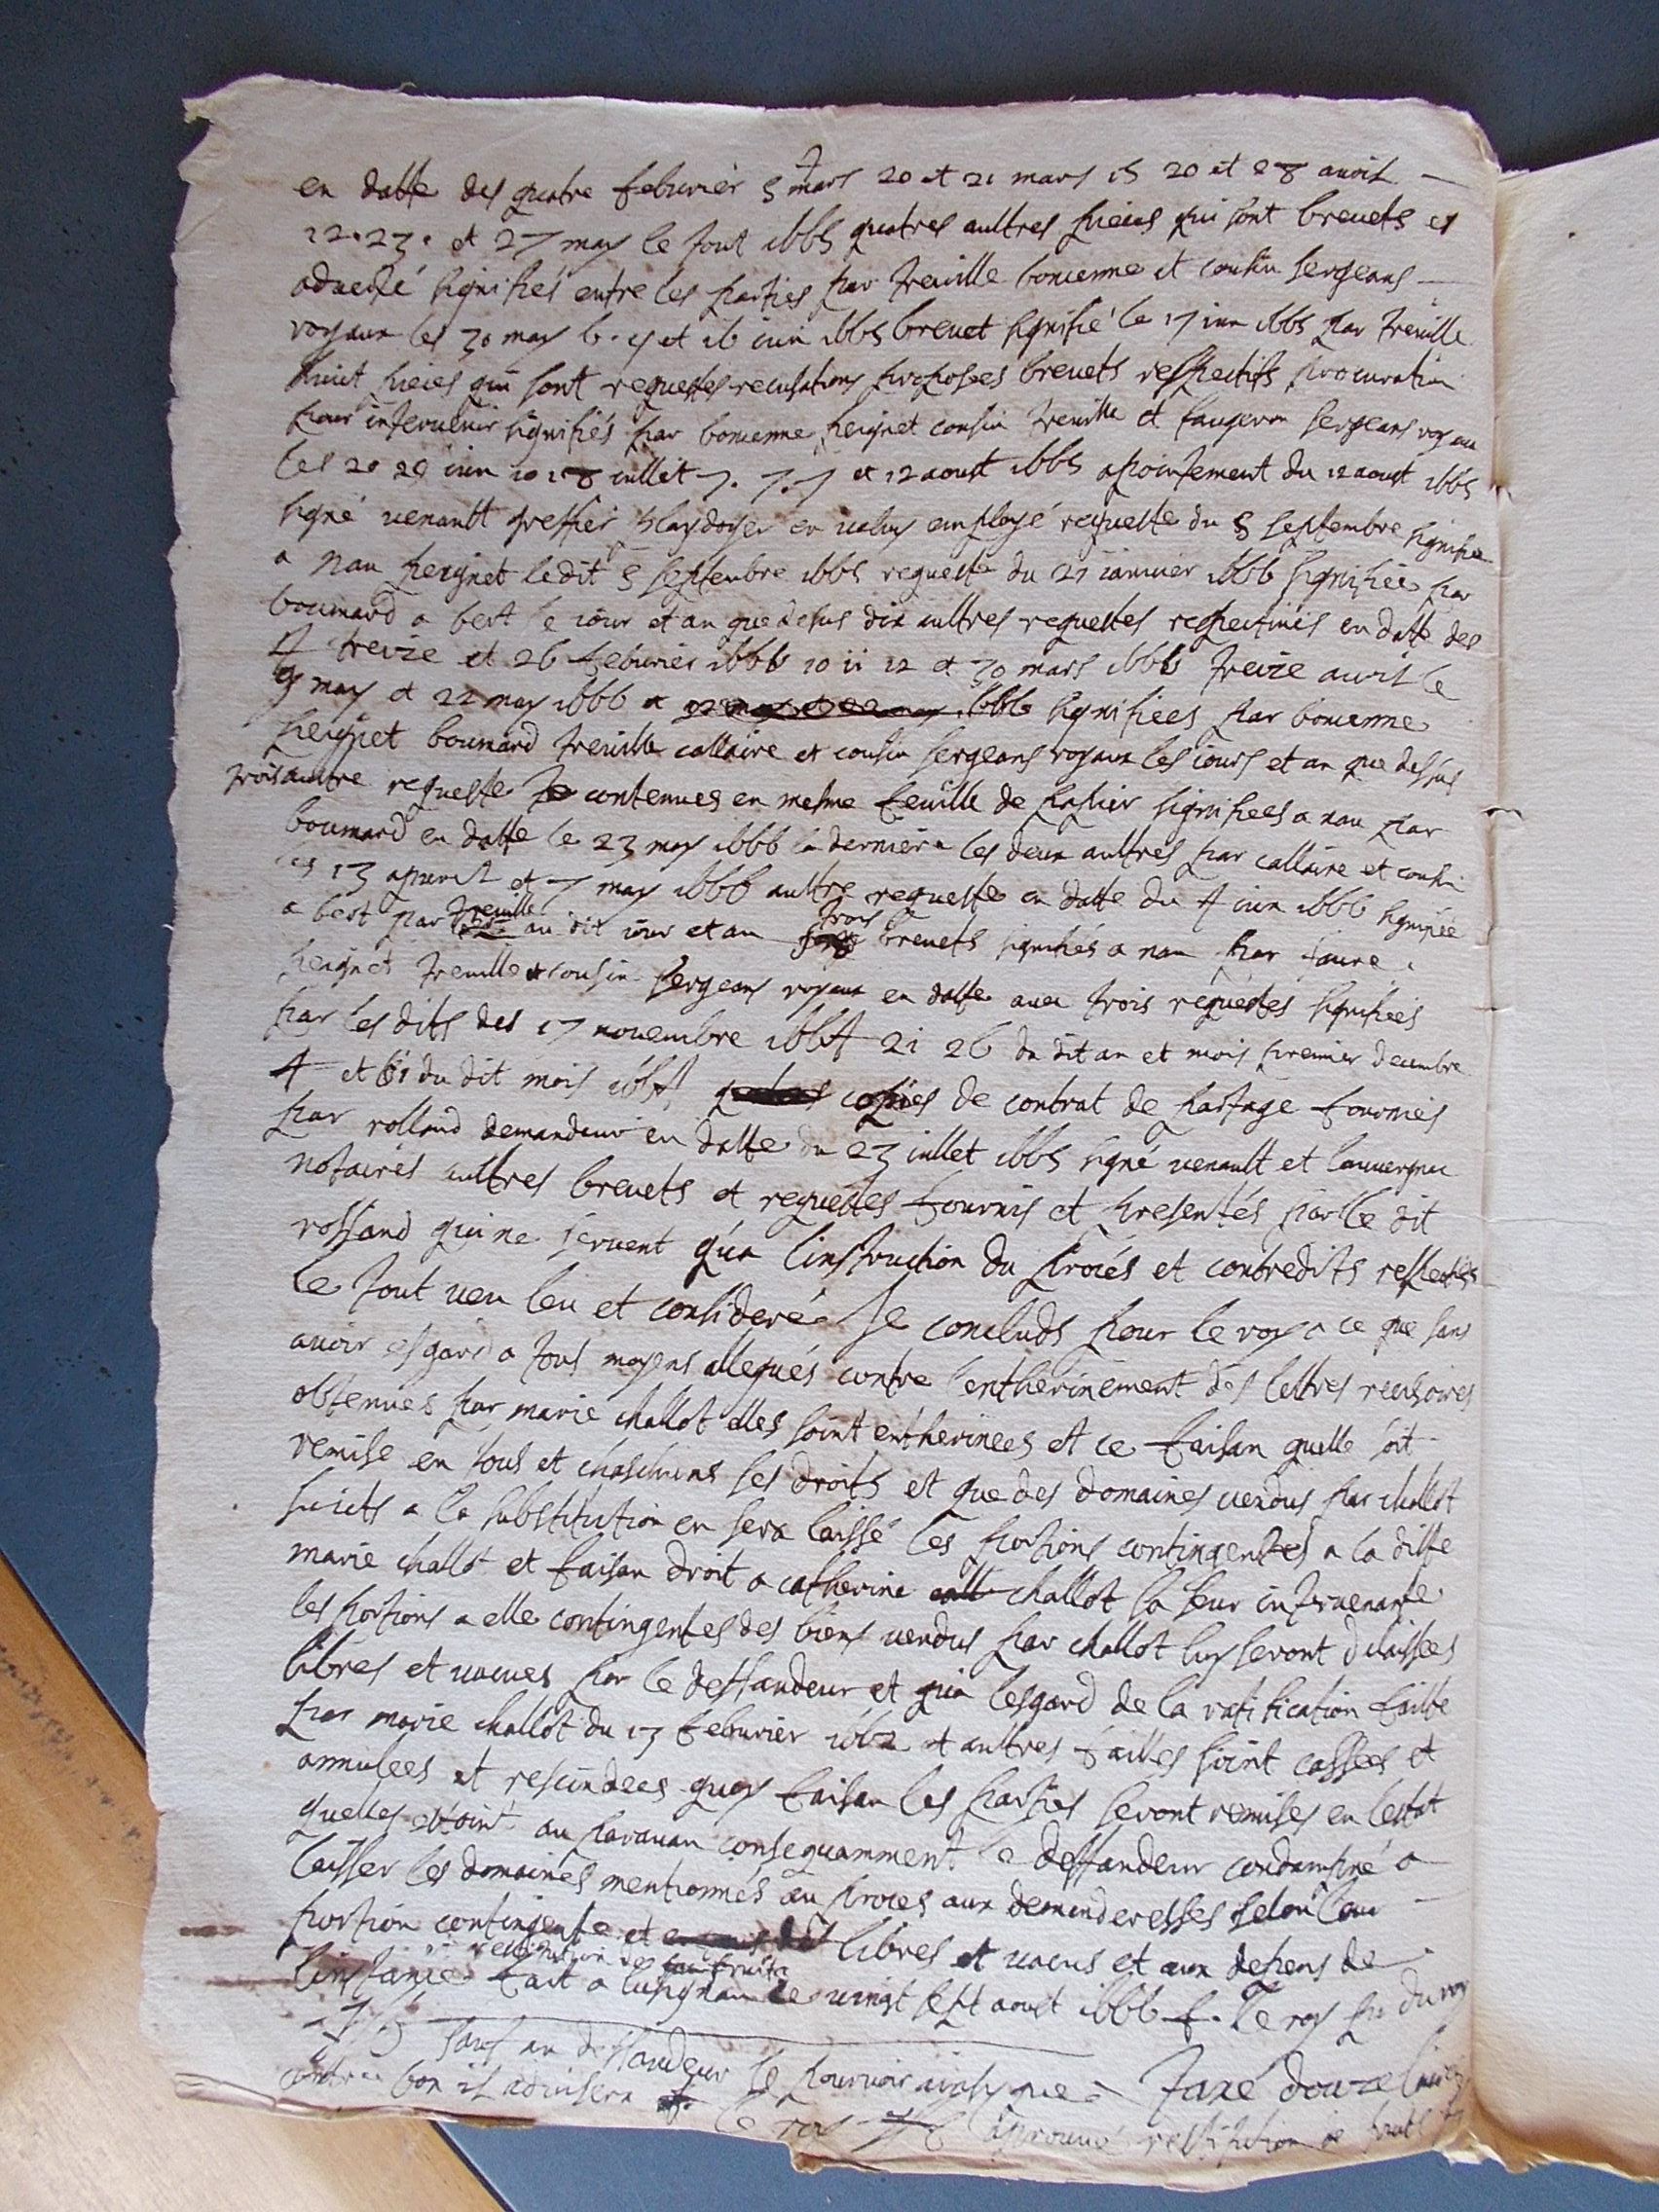 en datte des quatre februrier 5 mars 20 et 21 mars 15 20 et 28 auril
12. 23. et 27 may le tout 1665 quatres aultres pieces qui sont breuets et
aduerté signifiés entre les parties par treuille boncenne et cousin sergeans
royaux les 30 may 6. 9 et 16 iuin 1665 breuet signifié le 17 iuin 1665 par treuille
huict pieces qui sont requestes recusations proposees breuets respectifs procuration
pour interuenir signifiés par boncenne peignet cousin treuille et faugeron sergeans royau
les 20 20 iuin 10 18 iuillet 7. 7. 7 et 12 aoust 1665 apointement du 12 aoust 1665
signé uenault greffier playdoyer en uelin employé requeste du 5 septembre signifiee
a nau peignet ledit 5 septembre 1665 requeste du 21 ianuier 1666 signifiée par
boumard a bert le iour et an que desus dix aultres requestes respectiues en datte des
4 treize et 26 februrier 1666 10 11 12 et 30 mars 1666 treize auril le
9 may et 22 may 1666 et 1666 signifiees par boncenne
peignet boumard treuille callaire et cousin sergeans royaux les iours et an que dessus
trois autre requeste contenues en mesme feuille de papier signifiees a nau par
boumard en datte le 23 may 1666 la derniere les deux aultres par callaire et cousin
les 13 apuril et 7 may 1666 aultre requeste en datte du 4 iuin 1666 signifiée
a bert par treuille au dit iour et an trois breuets signifiés a nau par faure
peignet treuille et cousin sergeans royaux en datte auec trois requestes signifiees
par les dits des 17 nouembre 1664 21 26 du dit an et mois premier decembre
4 et du dit mois 1664 copies de contrat de partage fournies
par rolland demandeur en datte du 23 iuillet 1665 signé uenault et
notaires aultres breuets et requestes fournis et presentés par le dit
rolland qui ne seruent qua linstruction du procés et contredits respectifs
le tout ueu leu et consideré Je concluds pour le roy a ce que sans
auoir esgard a tous moyens allegués contre lentherinement des lettres recisoires
obtenues par marie challot elles soint entherinees et ce faisan quelle soit
remise en tous et chaschuns ses droits et que des domaines uendus par challot
suiets a la substitution en sera laissé les portions contingentes a la ditte
marie challot et faisan droit a catherine challot sa seur interuenante
les portions a elle contingentes des biens uendus par challot luy seront delaissees
libres et uacues par le deffandeur et qua lesgard de la ratification faitte
par marie challot du 13 februrier 1662 et aultres failles soint cassees et
annulees et rescindees quoy faisan les parties seront remises en lestat
quelles estoint au parauan consequamment le deffandeur condampné a
laisser les domaines mentionnés au proces aux demanderesses selon leur
portion contingente et libres et uacus et aux depens de
restitution de fruits
linstance fait a lusignan le uingt sept aoust 1666 f. le roy pr du roy
sauf au deffandeur se pouruoir ainsy que
contre bon il aduisera Taxé douze liures
le roy aprouué restitution de fruits